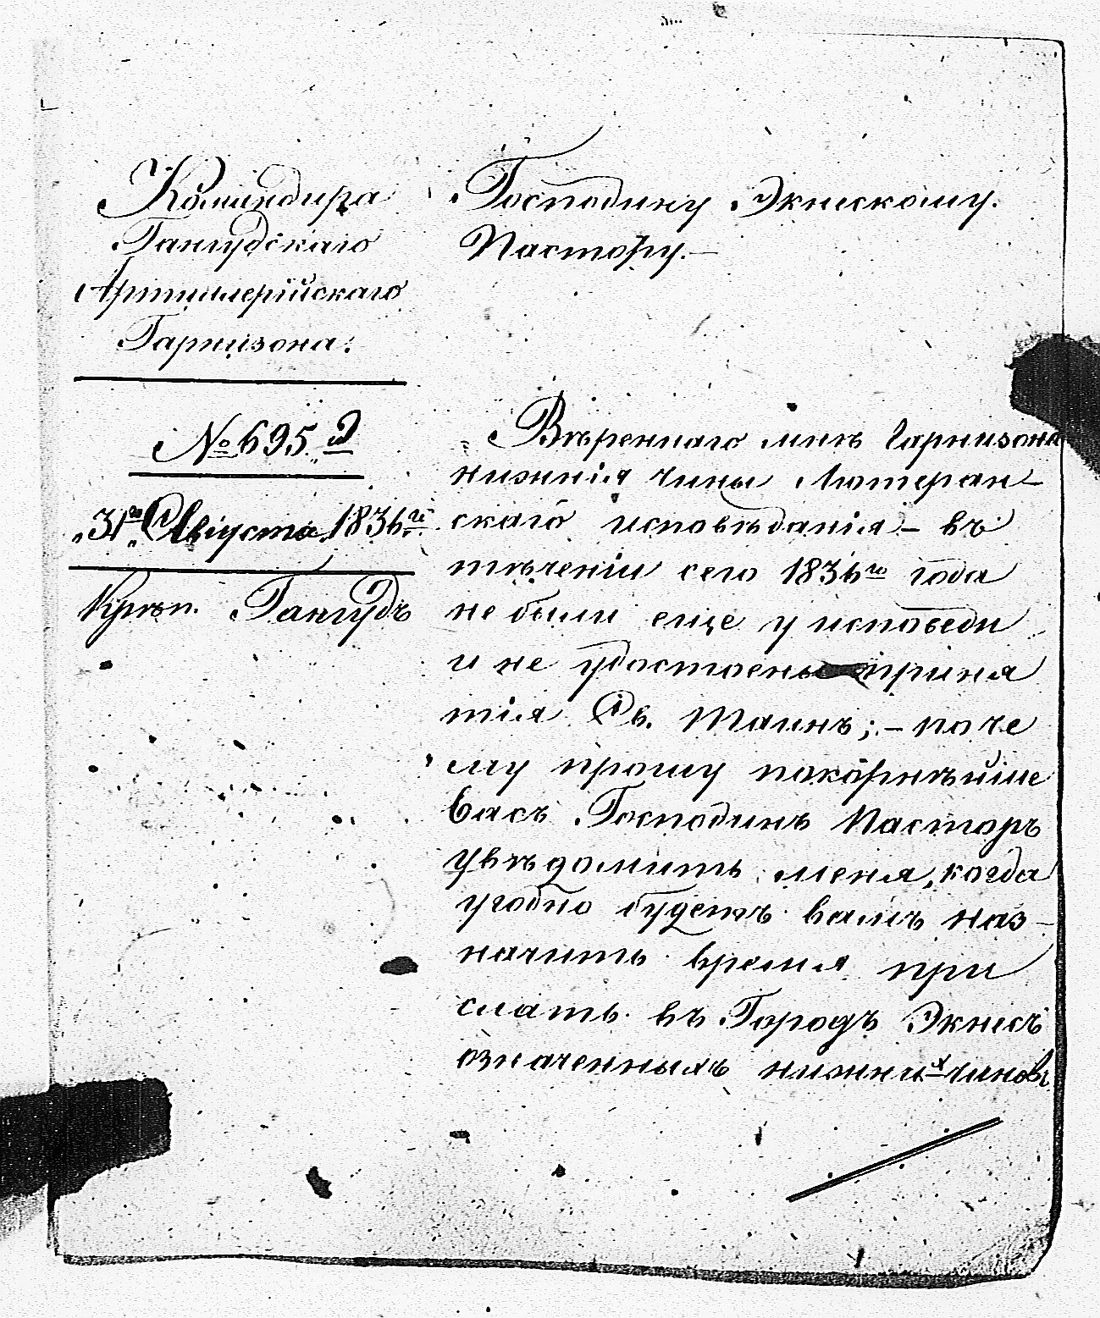 Командира
Гангудскаго
Артиллерійскаго
Гарнизона.
№ 695.й
„31го„ Августа 1836го
Крѣп. Гангудъ
Господину Экнескому
Пастору.—
Ввѣреннаго мнѣ Гарнизона
нижнія чины Лютеран-
скаго исповѣданія – въ
тѣченіи сего 1836го года
не были еще у исповеди
и не удостоены приня
тія Св. Таинъ; – поче
му прошу покорнѣйше
Васъ Господинъ Пасторъ
увѣдомить меня, когда
угодно будетъ вамъ наз-
начить время при
слать въ Городъ Экнесъ
означенныхъ нижнихъ чиновъ